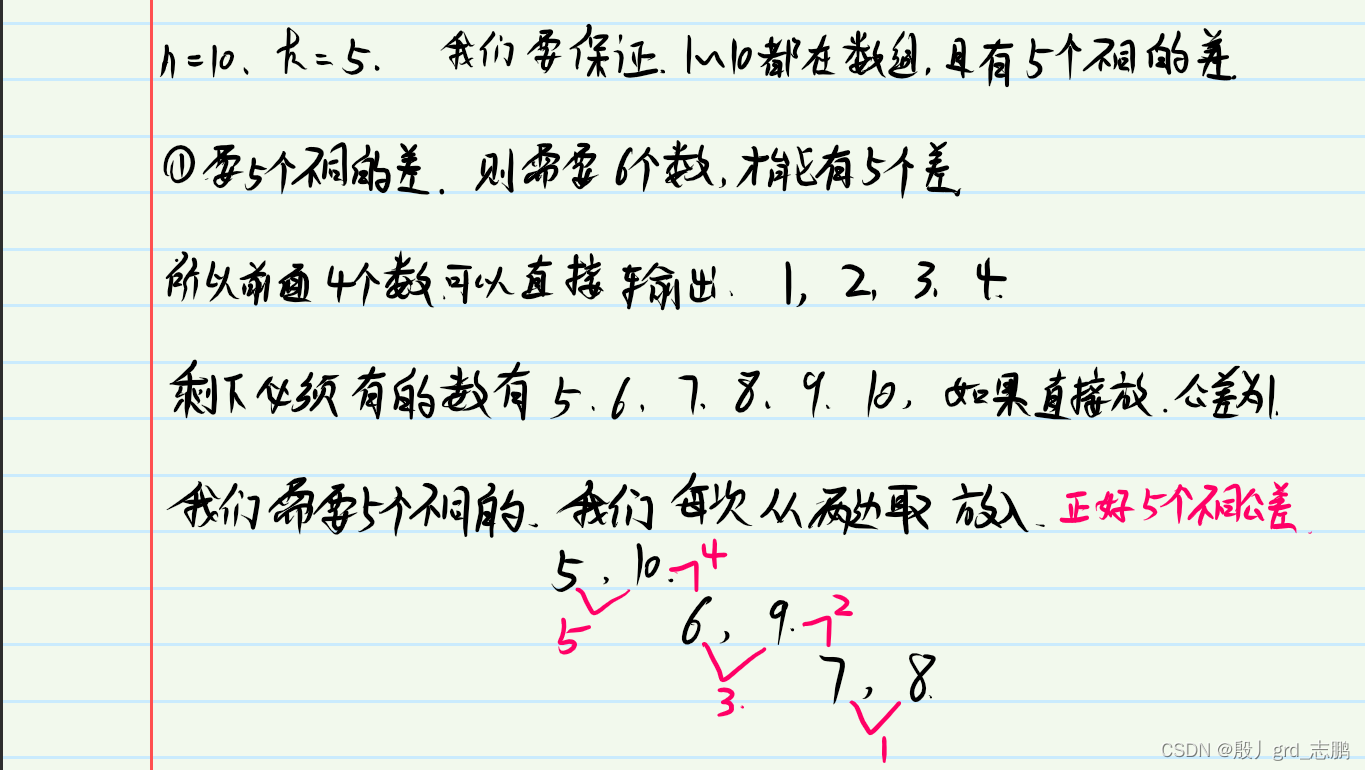 n=10、k=5. 我们要保证. 1~10都在数组,且有5个不同的差.
①要5个不同的差. 则需要6个数,才能有5个差.
所以前面4个数可以直接输出. 1, 2, 3, 4.
剩下必须有的数有 5、6、7、8、9、10, 如果直接放.公差为1.
我们需要5个不同的. 我们每次从两边取 放入. 正好5个不同公差.
5, 10. 4
5 6, 9. 2
3. 7, 8.
1
CSDN @殷丿grd_志鹏